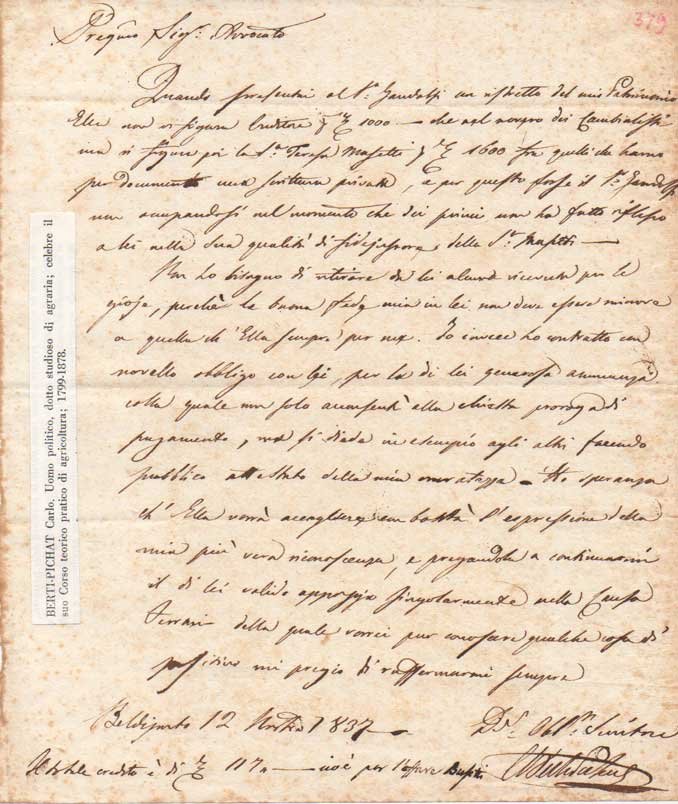 379
Pregmo Sigr. Avvocato
Quando presentai al Sr. Gandolfi un ristretto del mio Patrimonio
Ella non vi figura Creditore 1000 — che nel novero dei Cambialisti
ma vi figura poi la Sra. Teresa Masetti 1600 fra quelli che hanno
per documento una scrittura privata, e per questo forse il Sr. Gandolfi
non occupandosi nel momento che dei primi non ha fatto riflesso
a lei nella sua qualità di fidejussore della Sra. Masetti —
Non ho bisogno di ritirare da lei alcuna ricevuta per le
gioje, perchè la buona fede mia in lei non deve essere minore
a quella ch' Ella sempre per me. Io invece ho contratto un
novello obbligo con lei, per la di lei generosa annuenza
colla quale non solo acconsentì alla chiesta proroga di
pagamento, ma si diede in esempio agli altri facendo
pubblico attestato della mia onoratezza. Ho speranza
ch' Ella vorrà accogliere con bontà l'espressione della
mia più vera riconoscenza, e pregandola a continuarmi
il di lei valido appoggio singolarmente nella Causa
Ferrari della quale vorrei pur conoscere qualche cosa di
positivo mi pregio di raffermarmi sempre
12 1837
Obbm. Servitore
Il totale credito è di 117 — cioè per
BERTI-PICHAT Carlo. Uomo politico, dotto studioso di agraria; celebre il
suo Corso teorico pratico di agricoltura; 1799-1878.